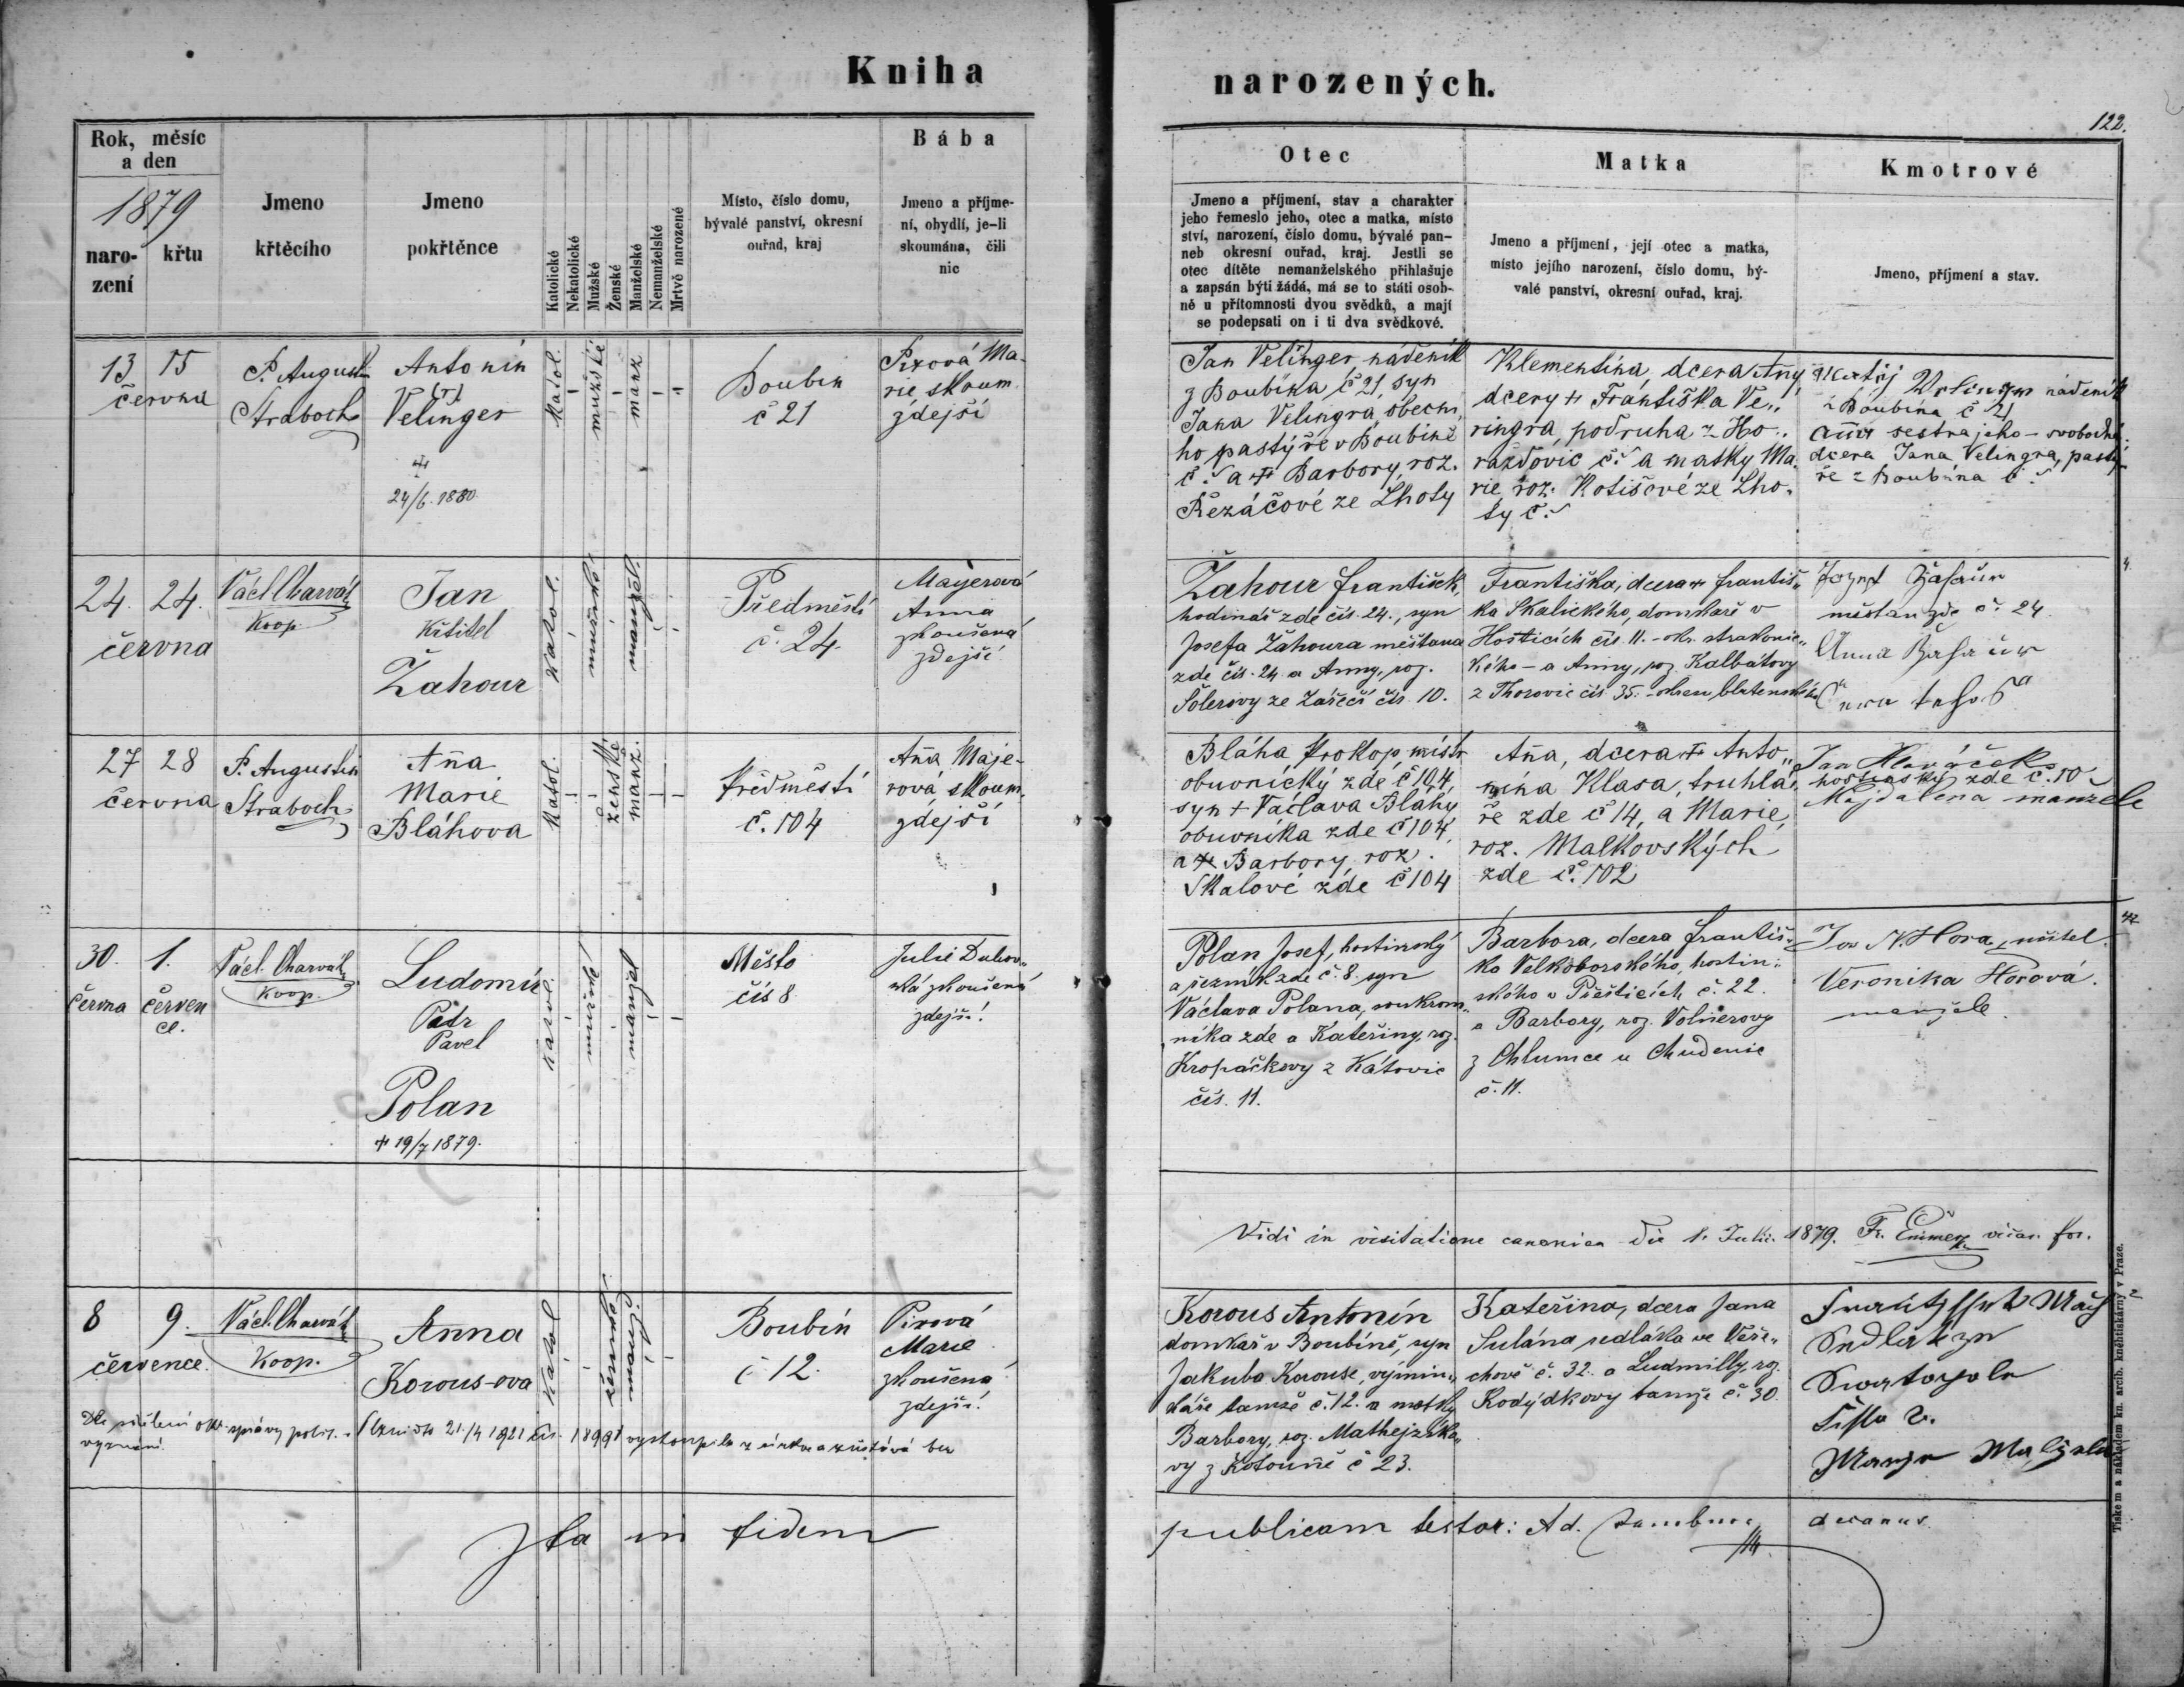 Kniha
narozených.
122.
Rok, měsíc
a den
1879
naro-
zení
křtu
Jmeno
křtěcího
Jmeno
pokřtěnce
Katolické
Nekatolické
Mužské
Ženské
Manželské
Nemanželské
Mrtvě narozené
Místo, číslo domu,
bývalé panství, okresní
ouřad, kraj
Bába
Jmeno a příjme-
ní, obydlí, je-li
skoumána, čili
nic
Otec
Jmeno a příjmení, stav a charakter
jeho řemeslo jeho, otec a matka, místo
ství, narození, číslo domu, bývalé pan-
neb okresní ouřad, kraj. Jestli se
otec dítěte nemanželského přihlašuje
a zapsán býti žádá, má se to státi osob-
ně u přítomnosti dvou svědků, a mají
se podepsati on i ti dva svědkové.
Matka
Jmeno a příjmení, její otec a matka,
místo jejího narození, číslo domu, bý-
valé panství, okresní ouřad, kraj.
Kmotrové
Jmeno, příjmení a stav.
13 15
června
P. Augustin
Straboch
Antonín
(r)
Velinger
24/6. 1880.
Katol.
mužské
manž
Boubín
č 21
Pixová Ma-
rie skoum
zdejší
Jan Velinger nádeník
z Boubína č 21, syn
Jana Velingra, obecní
ho pastýře v Boubíně
č. a + Barbory, roz.
Řezáčové ze Lhoty
Klementina, dcera Anny
dcery + Františka Ve„
ringra, podruha z Ho„
ražďovic č. a matky Ma„
rie, roz. Kotišové ze Lho„
ty č.
Matěj Velinger nádeník
z Boubína č 21
Anna sestra jeho - svobodná
dcera Jana Velingra, pastý-
ře z Boubína č
24. 24.
června
Václ. Charvát
Koop.
Jan
Křtitel
Žahour
Katol.
mužské
manžel.
Předměstí
č. 24.
Mayerová
Anna
zkoušená
zdejší
Žahour František,
hodinář zde čís. 24., syn
Josefa Žahoura měšťana
zde čís. 24 a Anny, roz.
Šolerovy ze Zářečí čís. 10.
Františka, dcera + Františ„
ka Skalického, domkaře v
Hošticích čís. 11. - okr. strakonic„
kého - a Anny, roz. Kalbátovy
z Thorovic čís 35.
měšťan zde č. 24
Anna
27 28
června
P. Augustin
Straboch
Anna
Marie
Bláhova
Katol.
ženské
manž.
Předměstí
č. 104
Anna Maje-
rová skoum.
zdejší
Bláha Prokop, mistr
obuvnický zde č 104,
syn + Václava Bláhy
obuvníka zde č 104,
a + Barbory roz.
Skalové zde č 104
Anna, dcera + Anto„
nína Klasa, truhlá„
ře zde č 14, a Marie,
roz. Malkovských
zde č. 102
Jan Hlaváček
hostinský zde č. 10
Majdalena manžele
30. 1.
června červen
ce.
Václ. Charvát
Koop.
Ludomír
Petr
Pavel
Polan
+ 19/7 1879.
Katol.
mužské
manžel
Město
čís 8
Julie Dubov„
ská zkoušená
zdejší.
Polan Josef, hostinský
a řezník zde č. 8. syn
Václava Polana, soukrom„
níka zde a Kateřiny, roz.
Kropáčkovy z Kátovic
čís. 11.
Barbora, dcera Františ„
ka Velkoborského, hostin„
ského v Přešticích č. 22.
a Barbory, roz. Volnerovy
z Chlumce u Chudenic
č. 11.
Jan N. Hora, učitel.
Veronika Horová.
manžele.
Vidi in visitatione canonica die 1. Julii. 1879. Fr. vicar. for.
8 9.
července.
Václ. Charvát
Koop.
Anna
Korous-ova
Katol
ženské.
manž.
Boubín
č 12.
Pixová
Marie
zkoušená
zdejší.
Dle sdělení okr. správy polit. 21./4 1921 čís. 18991 vystoupila z církve a zůstává bez
vyznání.
Korous Antonín
domkař v Boubíně, syn
Jakuba Korouse, výmin„
káře tamže č. 12. a matky
Barbory, roz. Mathejzko„
vy z Kotouně č 23.
Kateřina, dcera Jana
Sulána sedláka ve Veše„
chově č. 32. a Ludmilly, roz.
Kodýdkovy tamže č. 30.
Ita in fidem
publicam testor: Ad. decanus
Tiskem a nákladem kn. arcib. kněhtiskárny v Praze.